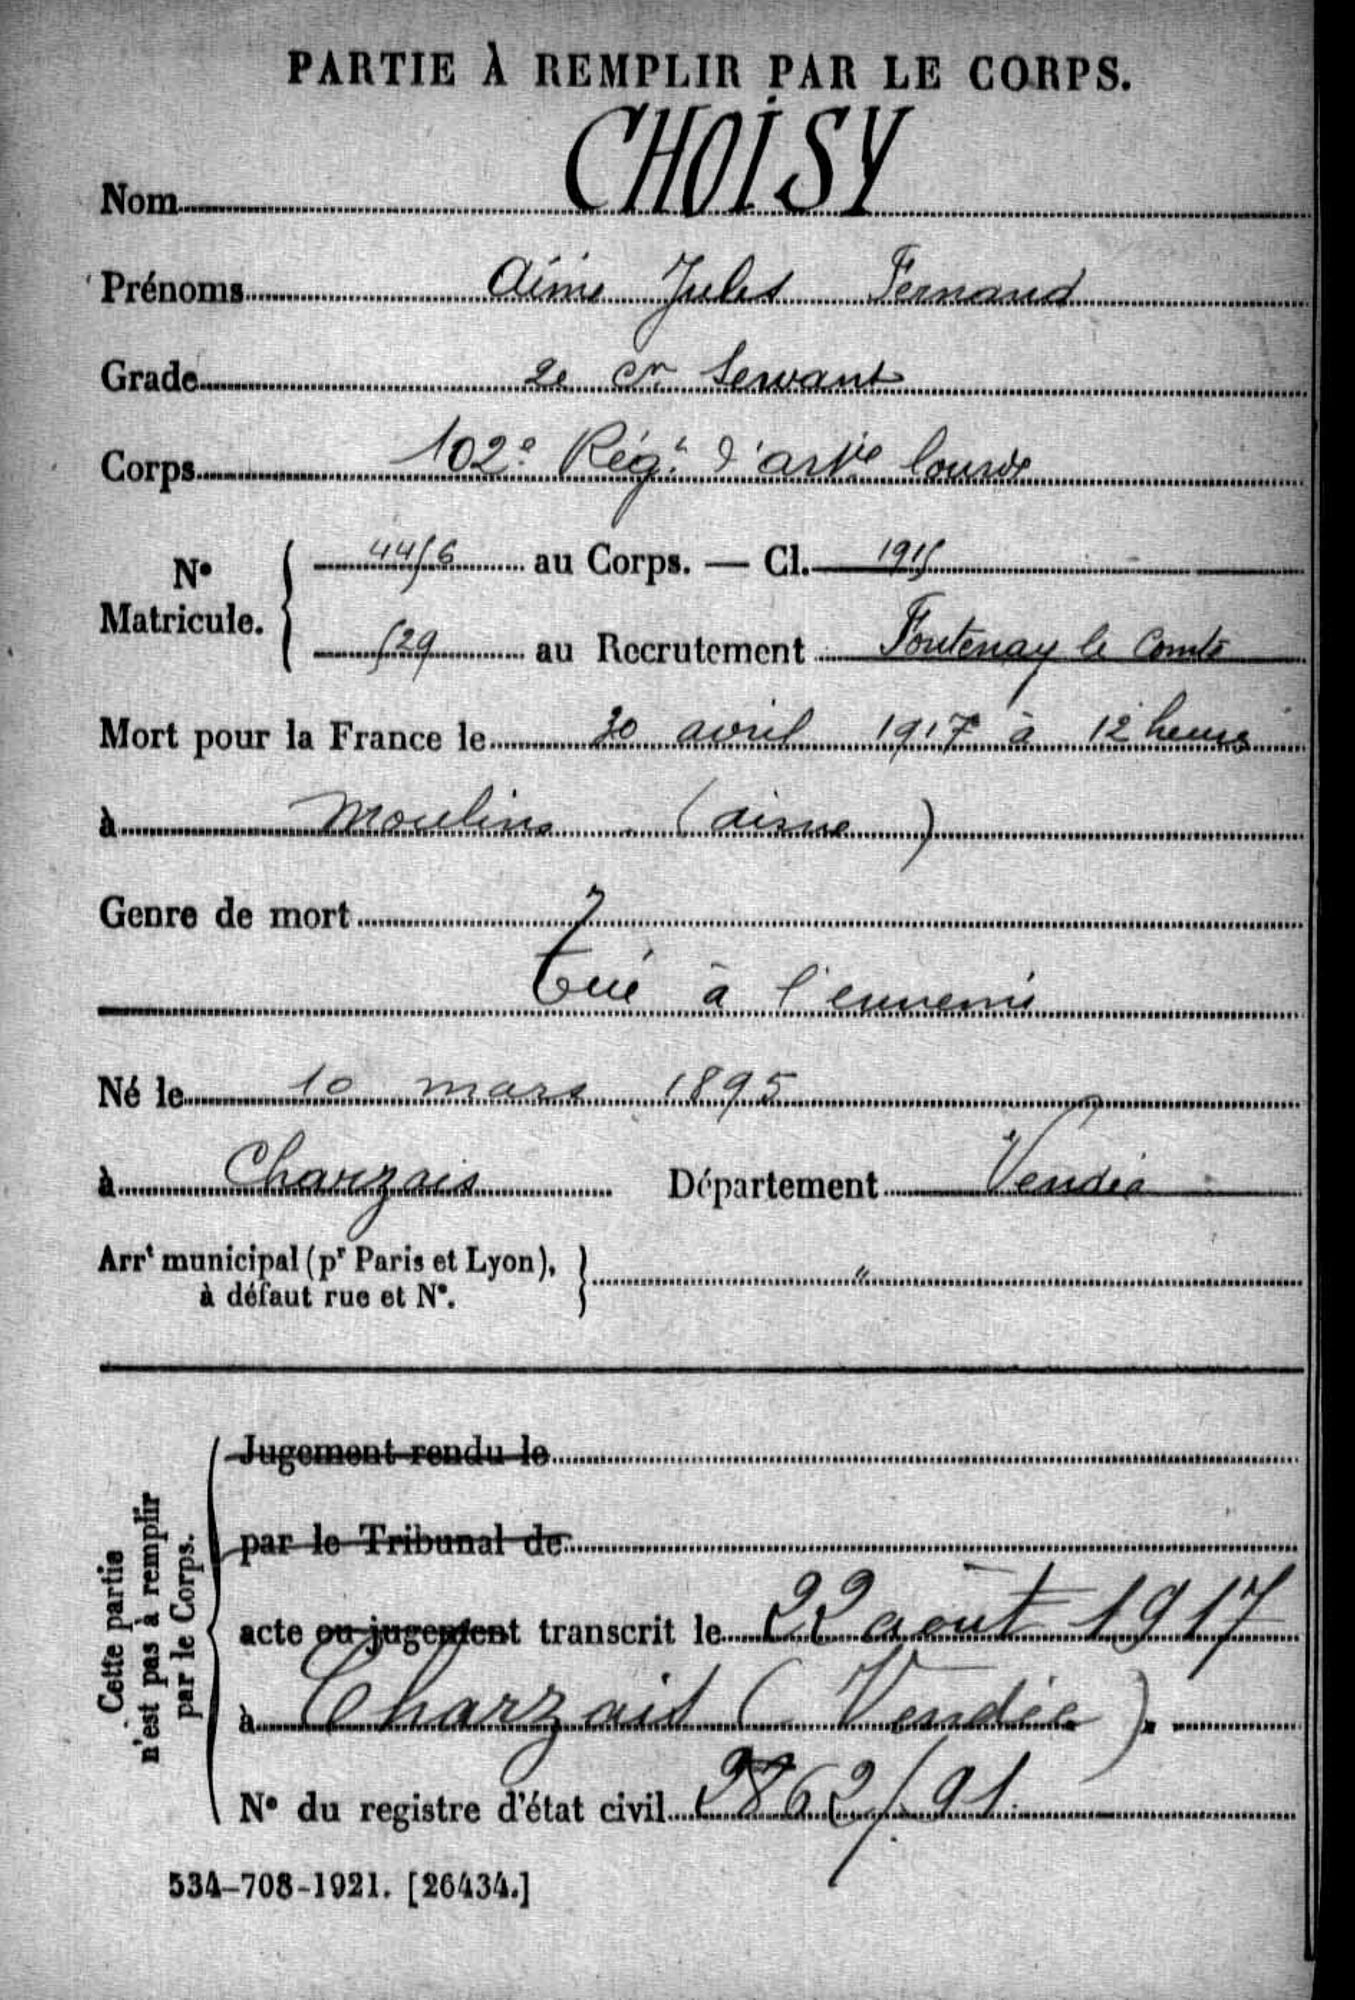 PARTIE À REMPLIR PAR LE CORPS.
Nom CHOISY
Prénoms Aimé Jules Fernand
Grade 2e cr Servant
Corps 102e Régt d'artie lourde
No Matricule. 4456 au Corps. — Cl. 1915
529 au Recrutement Fontenay le Comte
Mort pour la France le 30 avril 1917 à 12 heures
à Moulins (aisne)
Genre de mort
Tué à l'ennemi
Né le 10 mars 1895
à Charzais Département Vendée
Arrt municipal (pr Paris et Lyon), "
à défaut rue et No.
Cette partie
n'est pas à remplir
par le Corps.
Jugement rendu le
par le Tribunal de
acte ou jugement transcrit le 22 août 1917
à Charzais (Vendée).
No du registre d'état civil 2862/91.
534-708-1921. [26434.]